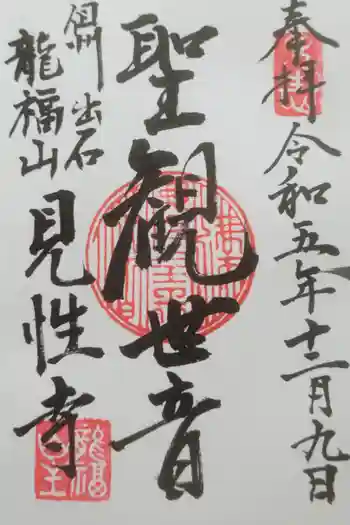 奉拝 令和五年十二月九日
聖観世音
但州出石
龍福山
見性寺